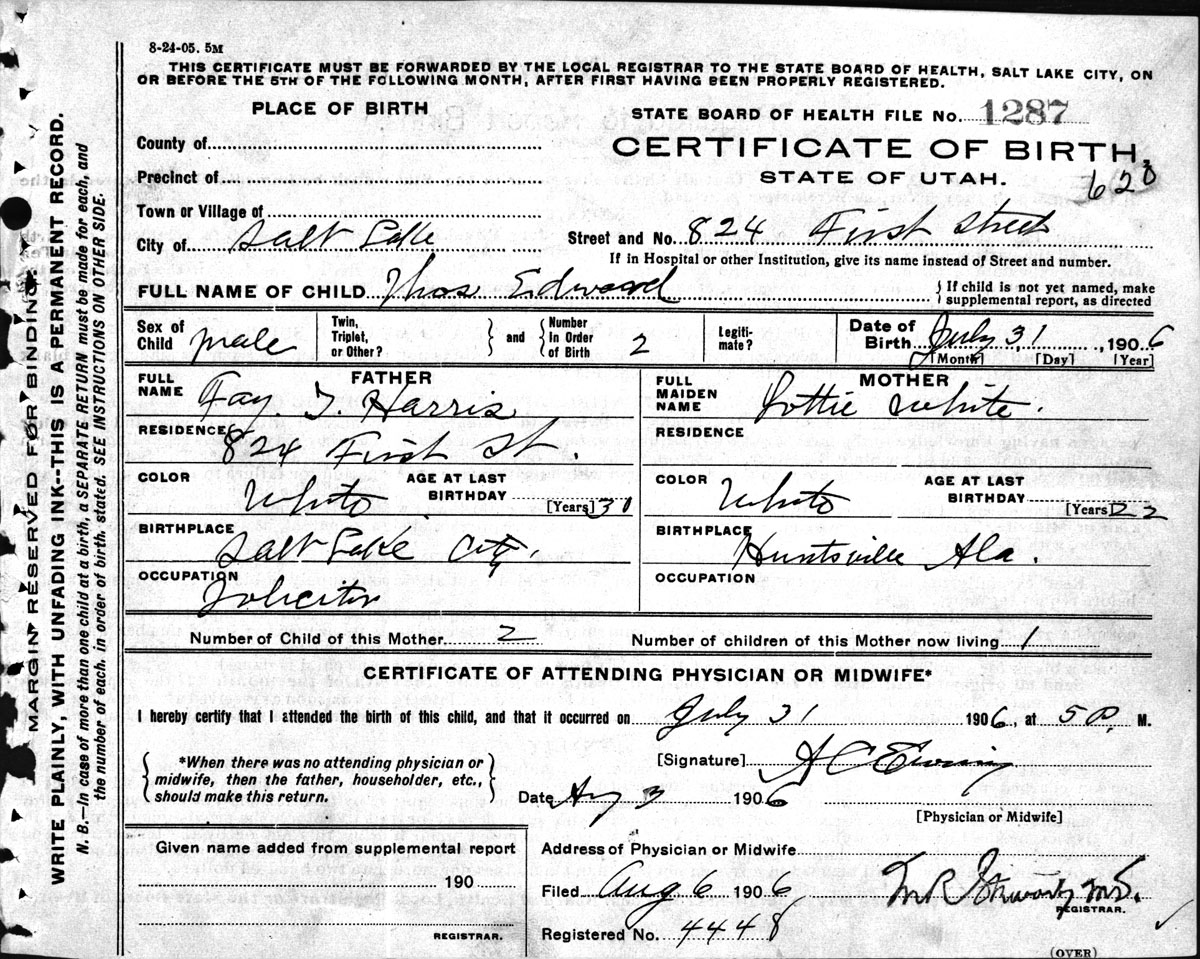 8-24-05. 5M
THIS CERTIFICATE MUST BE FORWARDED BY THE LOCAL REGISTRAR TO THE STATE BOARD OF HEALTH, SALT LAKE CITY, ON
OR BEFORE THE 5TH OF THE FOLLOWING MONTH, AFTER FIRST HAVING BEEN PROPERLY REGISTERED.
PLACE OF BIRTH
STATE BOARD OF HEALTH FILE No. 1287
County of
CERTIFICATE OF BIRTH,
Precinct of
STATE OF UTAH.
620
Town or Village of
City of Salt Lake
Street and No. 824 First Street
If in Hospital or other Institution, give its name instead of Street and number.
FULL NAME OF CHILD Thos Edward
{ If child is not yet named, make
supplemental report, as directed
Sex of Child male
Twin, Triplet, or Other?
} and { Number In Order of Birth 2
Legiti-mate?
Date of Birth July 31, 1906
[Month] [Day] [Year]
FATHER
FULL NAME Fay. T. Harris
MOTHER
FULL MAIDEN NAME Lottie White.
RESIDENCE 824 First St.
RESIDENCE
COLOR White
AGE AT LAST BIRTHDAY [Years] 30
COLOR White
AGE AT LAST BIRTHDAY [Years] 22
BIRTHPLACE Salt Lake City.
BIRTHPLACE Huntsville Ala.
OCCUPATION Solicitor
OCCUPATION
Number of Child of this Mother 2
Number of children of this Mother now living 1
CERTIFICATE OF ATTENDING PHYSICIAN OR MIDWIFE*
I hereby certify that I attended the birth of this child, and that it occurred on July 31 1906, at 5 P. M.
{ *When there was no attending physician or
midwife, then the father, householder, etc.,
should make this return. }
[Signature] A C Ewing
Date Aug 3 1906
[Physician or Midwife]
Given name added from supplemental report
190
REGISTRAR.
Address of Physician or Midwife
Filed Aug 6 1906
M.D.
REGISTRAR.
Registered No. 4448
(OVER)
MARGIN RESERVED FOR BINDING
WRITE PLAINLY, WITH UNFADING INK--THIS IS A PERMANENT RECORD.
N. B.—In case of more than one child at a birth, a SEPARATE RETURN must be made for each, and
the number of each, in order of birth, stated. SEE INSTRUCTIONS ON OTHER SIDE.